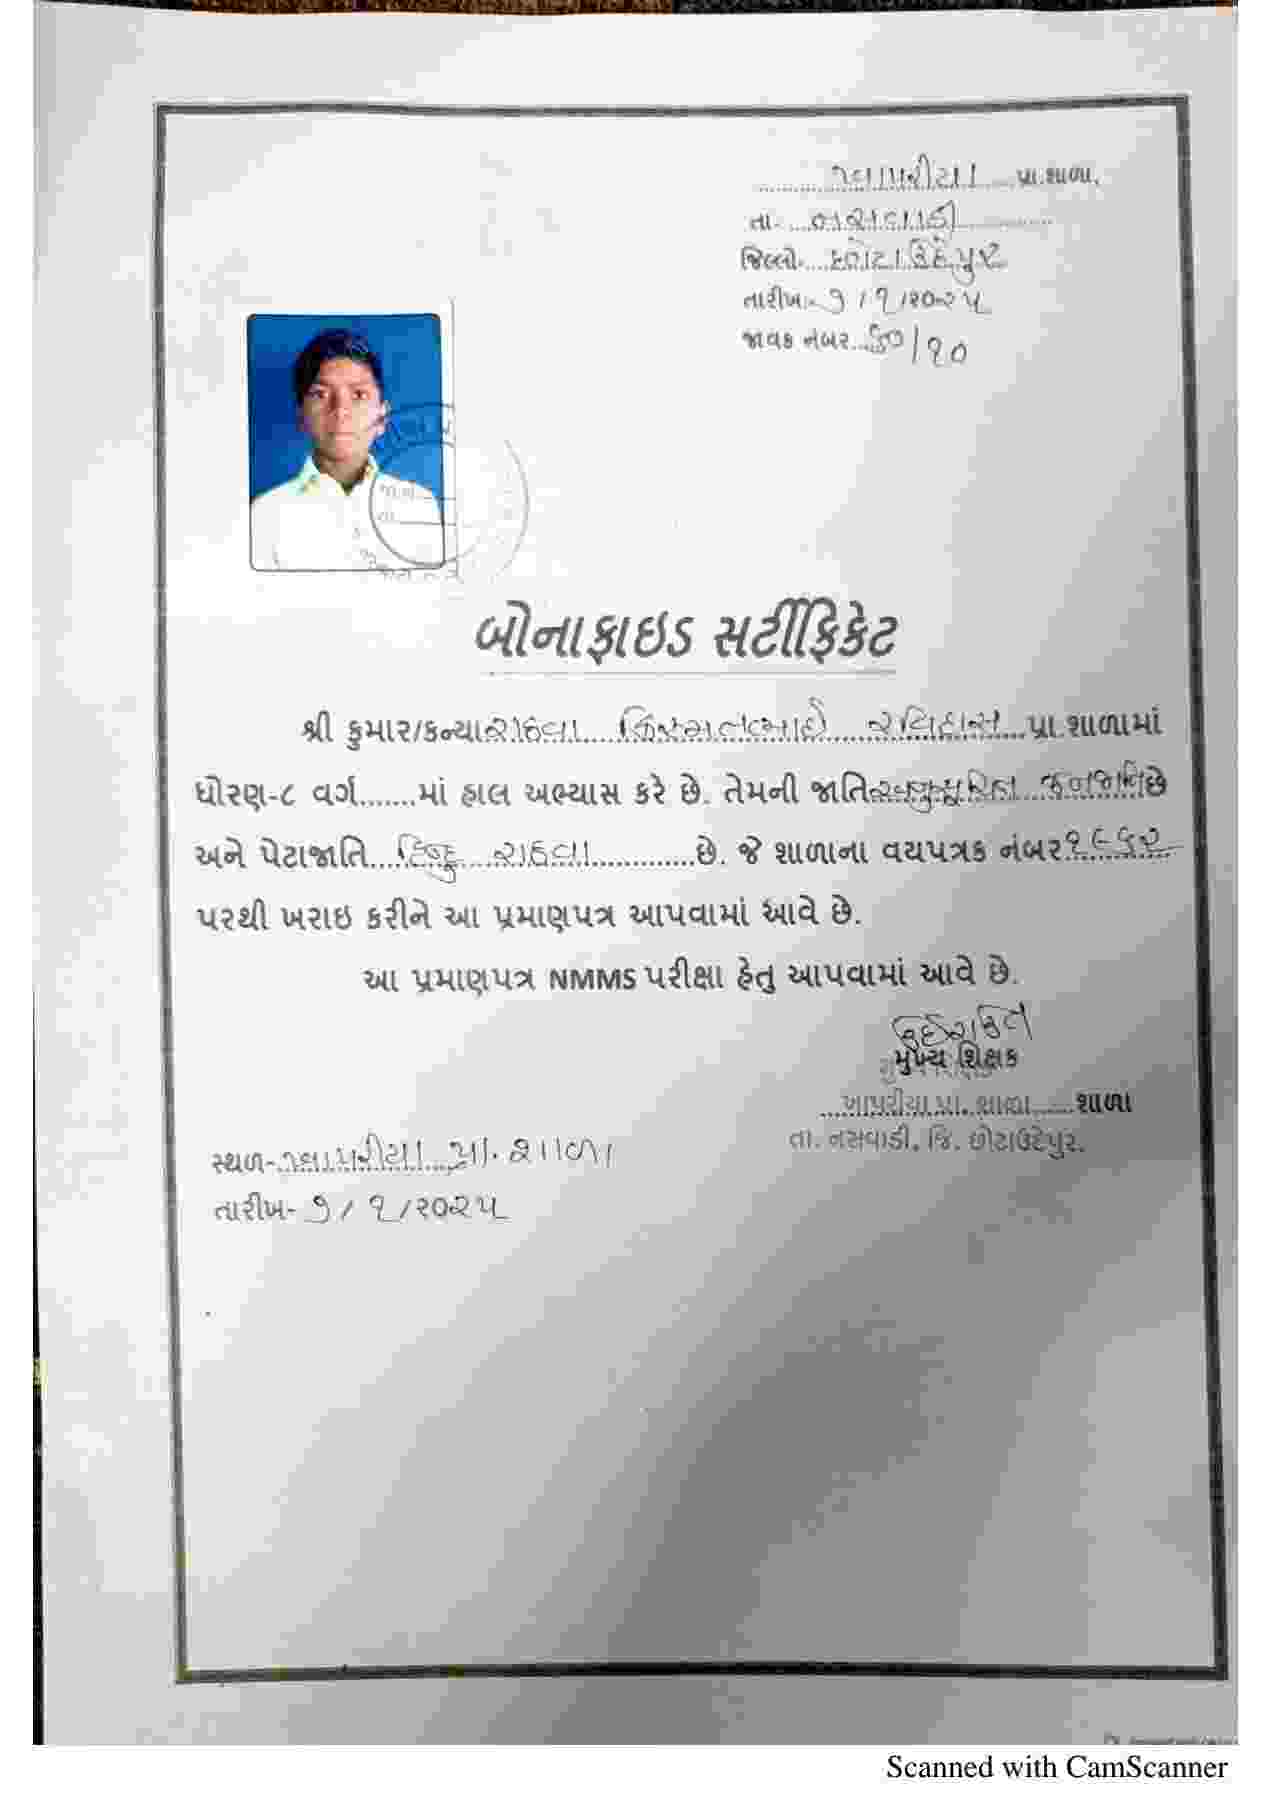 ખાપરીયા પ્રા.શાળા,
તા- નસવાડી
જિલ્લો- છોટાઉદેપુર
તારીખ:- ૭/૧/૨૦૨૫
જાવક નંબર
બોનાફાઇડ સર્ટીફિકેટ
શ્રી કુમાર/કન્યા રાઠવા કિસ્મતભાઇ રવિદાસ પ્રા.શાળામાં
ધોરણ-૮ વર્ગ.......માં હાલ અભ્યાસ કરે છે. તેમની જાતિ અનુસૂચિત જનજાતિ છે
અને પેટાજાતિ હિન્દુ રાઠવા છે. જે શાળાના વયપત્રક નંબર ૧૯૬૨
પરથી ખરાઇ કરીને આ પ્રમાણપત્ર આપવામાં આવે છે.
આ પ્રમાણપત્ર NMMS પરીક્ષા હેતુ આપવામાં આવે છે.
મુખ્ય શિક્ષક
ખાપરીયા પ્રા. શાળા શાળા
તા. નસવાડી, જિ. છોટાઉદેપુર.
સ્થળ- ખાપરીયા પ્રા. શાળા
તારીખ- ૭/૧/૨૦૨૫
Scanned with CamScanner